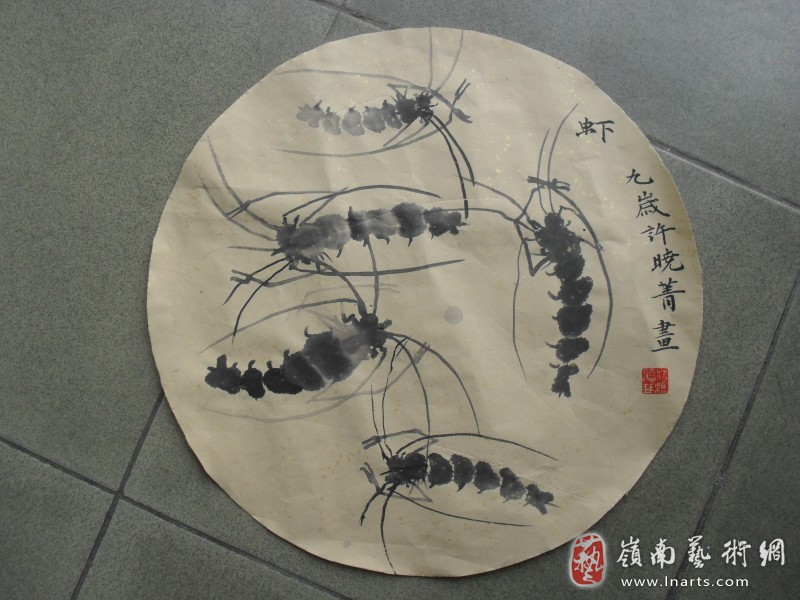 虾
九歳許曉菁畫
嶺南藝術網
www.lnarts.com